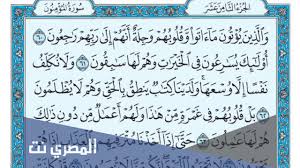 الجزء الثامن عشر
سورة المؤمنون
وَٱلَّذِينَ يُؤْتُونَ مَآ ءَاتَوا۟ وَّقُلُوبُهُمْ وَجِلَةٌ أَنَّهُمْ إِلَىٰ رَبِّهِمْ رَٰجِعُونَ ٦٠
أُو۟لَٰٓئِكَ يُسَٰرِعُونَ فِى ٱلْخَيْرَٰتِ وَهُمْ لَهَا سَٰبِقُونَ ٦١ وَلَا نُكَلِّفُ
نَفْسًا إِلَّا وُسْعَهَا وَلَدَيْنَا كِتَٰبٌ يَنطِقُ بِٱلْحَقِّ وَهُمْ لَا يُظْلَمُونَ ٦٢
بَلْ قُلُوبُهُمْ فِى غَمْرَةٍ مِّنْ هَٰذَا وَلَهُمْ أَعْمَٰلٌ مِّن دُونِ ذَٰلِكَ
هُمْ لَهَا عَٰمِلُونَ ٦٣ حَتَّىٰٓ إِذَآ أَخَذْنَا
المصري نت